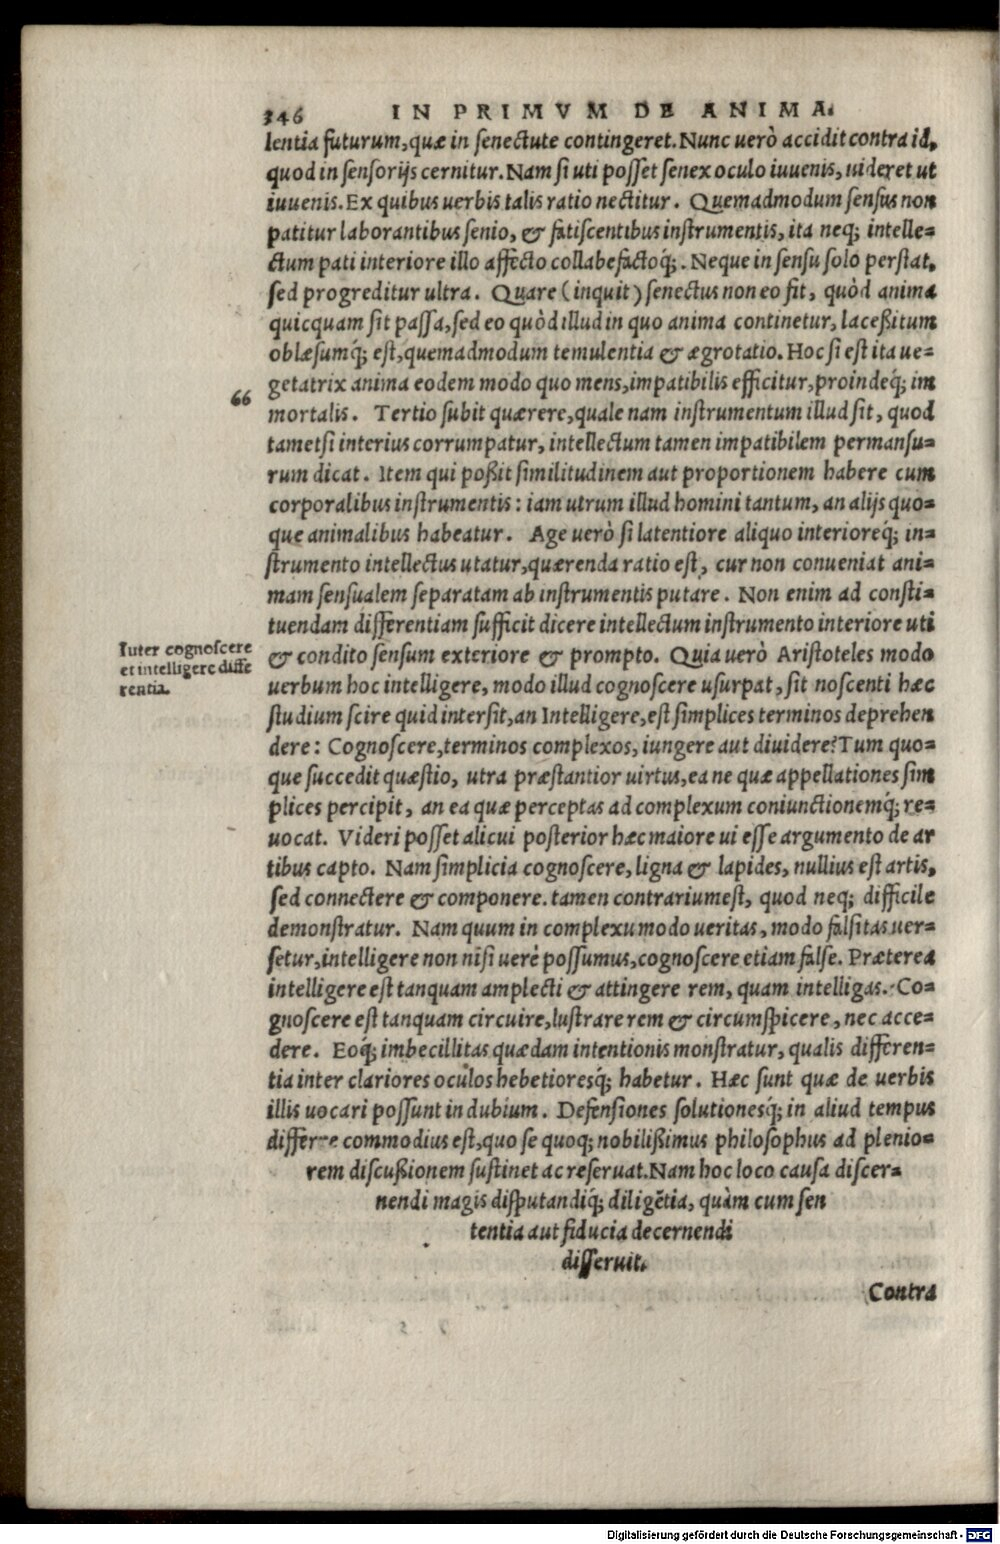 346 IN PRIMVM DE ANIMA.
lentia futurum, quæ in senectute contingeret. Nunc uerò accidit contra id,
quod in sensorijs cernitur. Nam si uti posset senex oculo iuuenis, uideret ut
iuuenis. Ex quibus uerbis talis ratio nectitur. Quemadmodum sensus non
patitur laborantibus senio, & fatiscentibus instrumentis, ita neq; intelle=
ctum pati interiore illo affecto collabefactoq́;. Neque in sensu solo perstat,
sed progreditur ultra. Quare (inquit) senectus non eo fit, quòd anima
quicquam sit passa, sed eo quòd illud in quo anima continetur, laceßitum
oblæsumq́; est, quemadmodum temulentia & ægrotatio. Hoc si est ita ue=
getatrix anima eodem modo quo mens, impatibilis efficitur, proindeq́; im
“
mortalis. Tertio subit quærere, quale nam instrumentum illud sit, quod
tametsi interius corrumpatur, intellectum tamen impatibilem permansu=
rum dicat. Item qui poßit similitudinem aut proportionem habere cum
corporalibus instrumentis: iam utrum illud homini tantum, an alijs quo=
que animalibus habeatur. Age uerò si latentiore aliquo interioreq́; in=
strumento intellectus utatur, quærenda ratio est, cur non conueniat ani=
mam sensualem separatam ab instrumentis putare. Non enim ad consti=
tuendam differentiam sufficit dicere intellectum instrumento interiore uti
Iuter cognoscere
et intelligere diffe
rentia.
& condito sensum exteriore & prompto. Quia uerò Aristoteles modo
uerbum hoc intelligere, modo illud cognoscere usurpat, sit noscenti hæc
studium scire quid intersit, an Intelligere, est simplices terminos deprehen
dere: Cognoscere, terminos complexos, iungere aut diuidere? Tum quo=
que succedit quæstio, utra præstantior uirtus, ea ne quæ appellationes sim
plices percipit, an ea quæ perceptas ad complexum coniunctionemq́; re=
uocat. Videri posset alicui posterior hæc maiore ui esse argumento de ar
tibus capto. Nam simplicia cognoscere, ligna & lapides, nullius est artis,
sed connectere & componere. tamen contrarium est, quod neq; difficile
demonstratur. Nam quum in complexu modo ueritas, modo falsitas uer=
setur, intelligere non nisi uerè possumus, cognoscere etiam false. Præterea
intelligere est tanquam amplecti & attingere rem, quam intelligas. Co=
gnoscere est tanquam circuire, lustrare rem & circumspicere, nec acce=
dere. Eoq́; imbecillitas quædam intentionis monstratur, qualis differen=
tia inter clariores oculos hebetioresq́; habetur. Hæc sunt quæ de uerbis
illis uocari possunt in dubium. Defensiones solutionesq́; in aliud tempus
differre commodius est, quo se quoq; nobilißimus philosophus ad plenio=
rem discußionem sustinet ac reseruat. Nam hoc loco causa discer=
nendi magis disputandiq́; diligẽtia, quàm cum sen
tentia aut fiducia decernendi
disseruit.
Contra
Digitalisierung gefördert durch die Deutsche Forschungsgemeinschaft - DFG